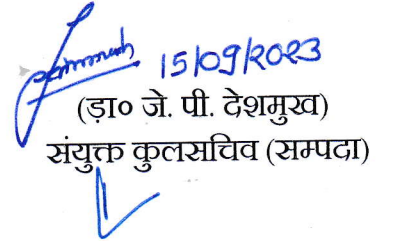 15/09/2023
(ड़ा० जे. पी. देशमुख)
संयुक्त कुलसचिव (सम्पदा)